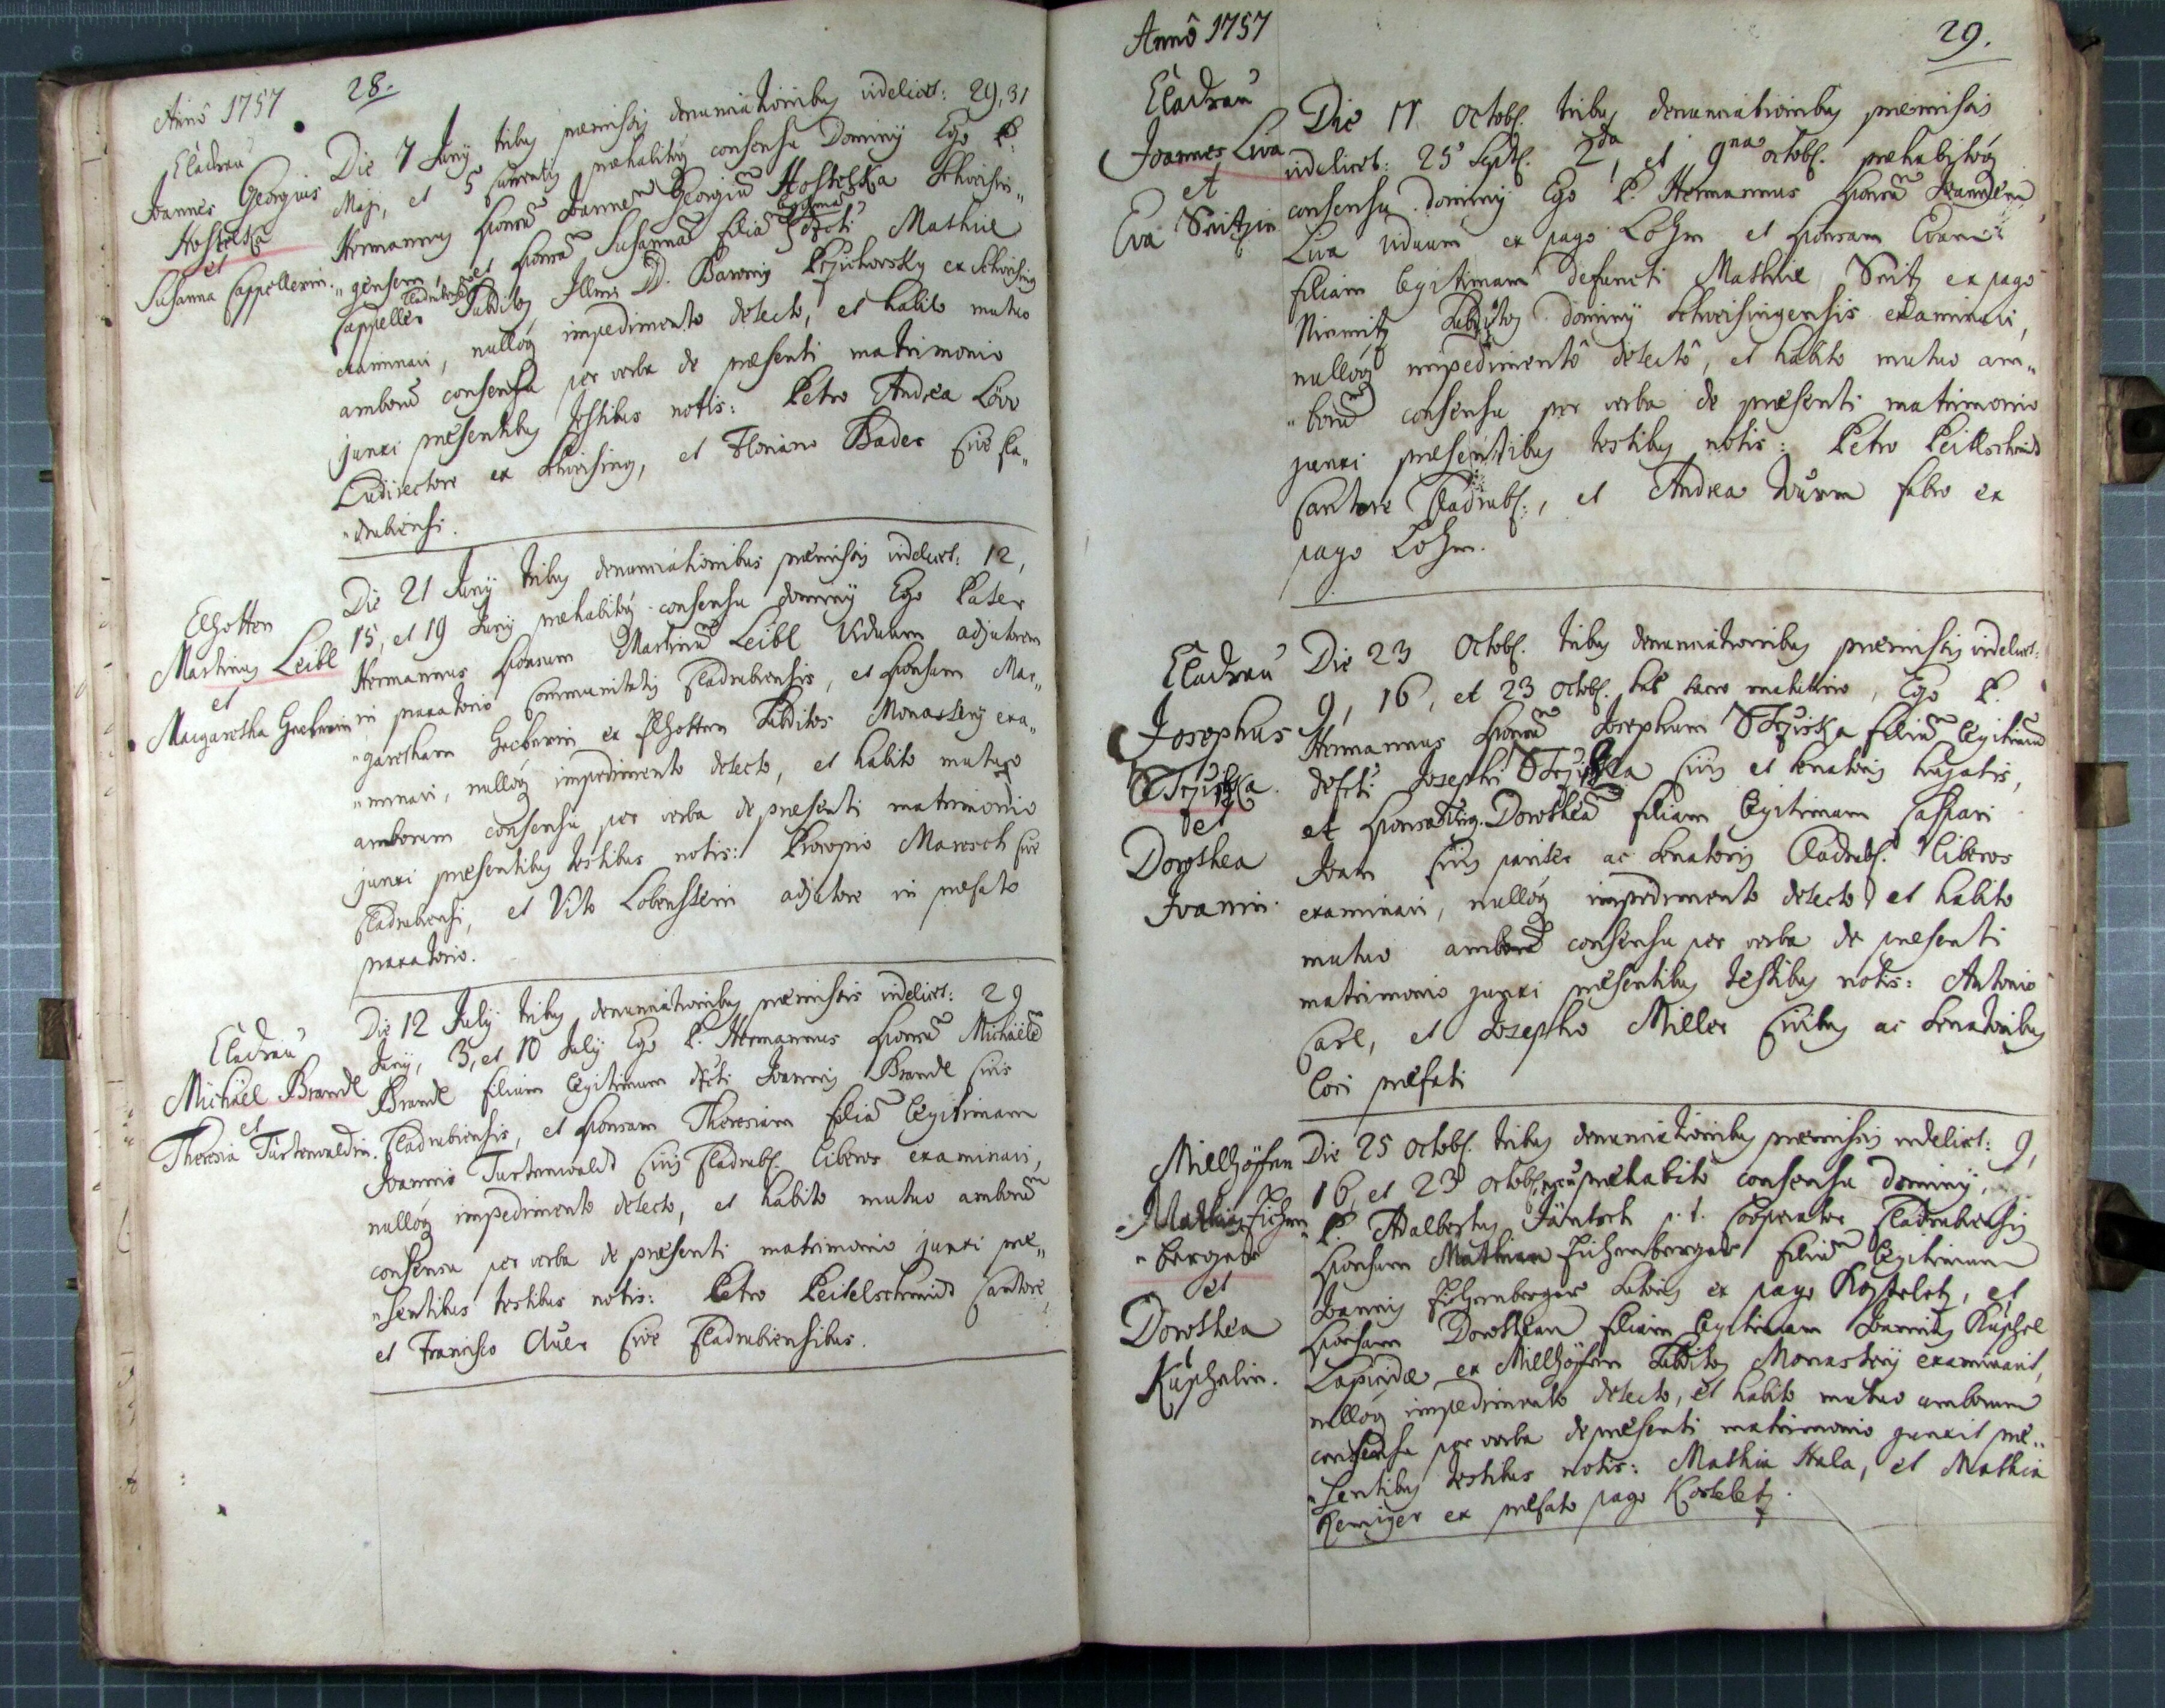 Anno 1757
28.
Cladrau
Joannes Georgius
Hostelka
et
Susanna Cappellerin.
Die 7 Junÿ tribus præmissis denunciationibus videlicet: 29, 31
Maji, et 5 currentis præhabitoq consensu Dominÿ Ego P.
Hermannus sponsum Joannem Georgium Hostelka Schweisin„
„gensem, et sponsam Susannam filiam legitimam defcti Mathiæ
Cappeller Cladrubiensis Subditos Illmi D. Baronis ex Schweising
examinavi, nulloq impedimento detecto, et habito mutuo
amborum consensu per verba de præsenti matrimonio
junxi præsentibus testibus notis: Petro Andrea Löw
Ludirectore ex Schweising, et Floriano Bader Cive Cla„
„drubiensi.
Elhotten
Martinus Leibl
et
Margaretha Greberin
Die 21 Junÿ tribus denunciationibus præmissis videlicet: 12,
15, et 19 Junÿ præhabitoq consensu dominÿ Ego Pater
Hermannus sponsum Martinum Leibl Viduum adjutorem
in praxatorio Communitatis Cladrubiensis, et sponsam Mar„
„garetham Greberin ex Elhotten Subditos Monasterÿ exa„
„minavi, nulloq impedimento detecto, et habito mutuo
amborum consensu per verba de præsenti matrimonio
junxi præsentibus testibus notis: Procopio Maresch Cive
Cladrubiensi, et Vito Lobenstein adjutore in præfato
praxatorio.
Cladrau
Michäel Brandl
et
Theresia Türstenwaldin.
Die 12 Julÿ tribus denunciationibus præmissis videlicet: 29
Junÿ, 3, et 10 Julÿ Ego P. Hermannus sponsum Michäelem
Brandl filium legitimum dfcti Joannis Brandl Civis
Cladrubiensis, et sponsam Theresiam filiam legitimam
Joannis Turstenwaldt Civis Cladrubs. liberos examinavi,
nulloq impedimento detecto, et habito mutuo amborum
consensu per verba de præsenti matrimonio junxi præ„
„sentibus testibus notis: Petro Peitelschmidt Cantore,
et Francisco Auer Cive Cladrubiensibus.
Anno 1757
29.
Cladrau
Joannes Liva
et
Eva Snitzin
Die 11 Octobs. tribus denunciationibus præmissis
videlicet: 25 Septs. 2da, et 9na octobs. præhabitoq
consensu dominÿ Ego P. Hermannus sponsum Joannem
Liva viduum ex pago Lohm et sponsam Evam
filiam legitimam defuncti Mathiæ Snitz ex pago
Subditos dominÿ Schweisingensis examinavi,
nulloq impedimento detecto, et habito mutuo am„
„borum consensu per verba de præsenti matrimonio
junxi præsentibus testibus notis: Petro Peitlschmidt
Cantore Cladrubs., et Andrea Wurm fabro ex
pago Lohm.
Cladrau
Josephus
Strziska
et
Dorothea
Joanin.
Die 23 Octobs. tribus denunciationibus præmissis videlicet:
9, 16, et 23 Octobs. sub sacro matutino, Ego P.
Hermannus sponsum Josephum Strziska filium legitimum
defcti Josephi Strziska Civis et Senatoris hujatis,
et sponsam Dorotheam filiam legitimam Caspari
Joan Civis pariter ac Senatoris Cladrubs. liberos
examinavi, nulloq impedimento detecto, et habito
mutuo amborum consensu per verba de præsenti
matrimonio junxi præsentibus testibus notis: Antonio
Carl, et Josepho Miller Civibus ac Senatoribus
loci præfati
Millhöfen
Mathias Fichen„
„berger
et
Dorothea
Kuphalin.
Die 25 Octobs. tribus denunciationibus præmissis videlicet: 9,
16, et 23 octobs. præhabito consensu dominÿ,
P. Adalbertus Jäntsch p. t. Cooperator Cladrubiensis
sponsum Mathiam Fichenberger filium legitimum
Joannis Fichenberger ex pago Kosteletz, et
sponsam Dorotheam filiam legitimam Joannis Kuphal
Lapicidæ ex Millhöfen Subditos Monasterÿ examinavit,
nulloq impedimento detecto, et habito mutuo amborum
consensu per verba de præsenti matrimonio junxit præ„
„sentibus testibus notis: Mathia Hala, et Mathia
Keniger ex præfato pago Kosteletz.